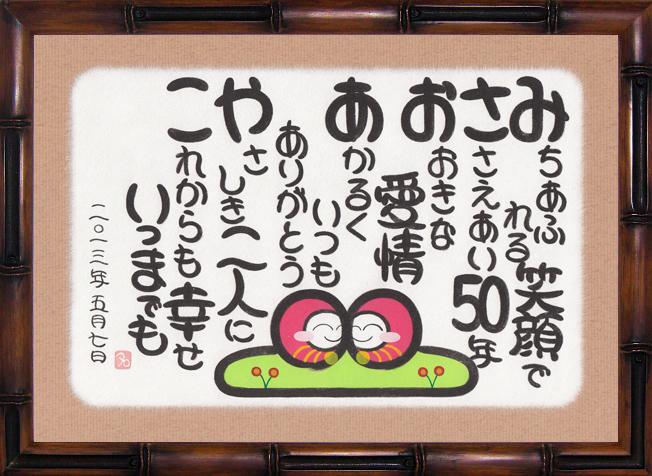 みちあふれる笑顔で
ささえあい50年
おおきな
愛情
あかるく
いつも
ありがとう
やさしき二人に
これからも幸せ
いつまでも
二〇一三年 五月七日